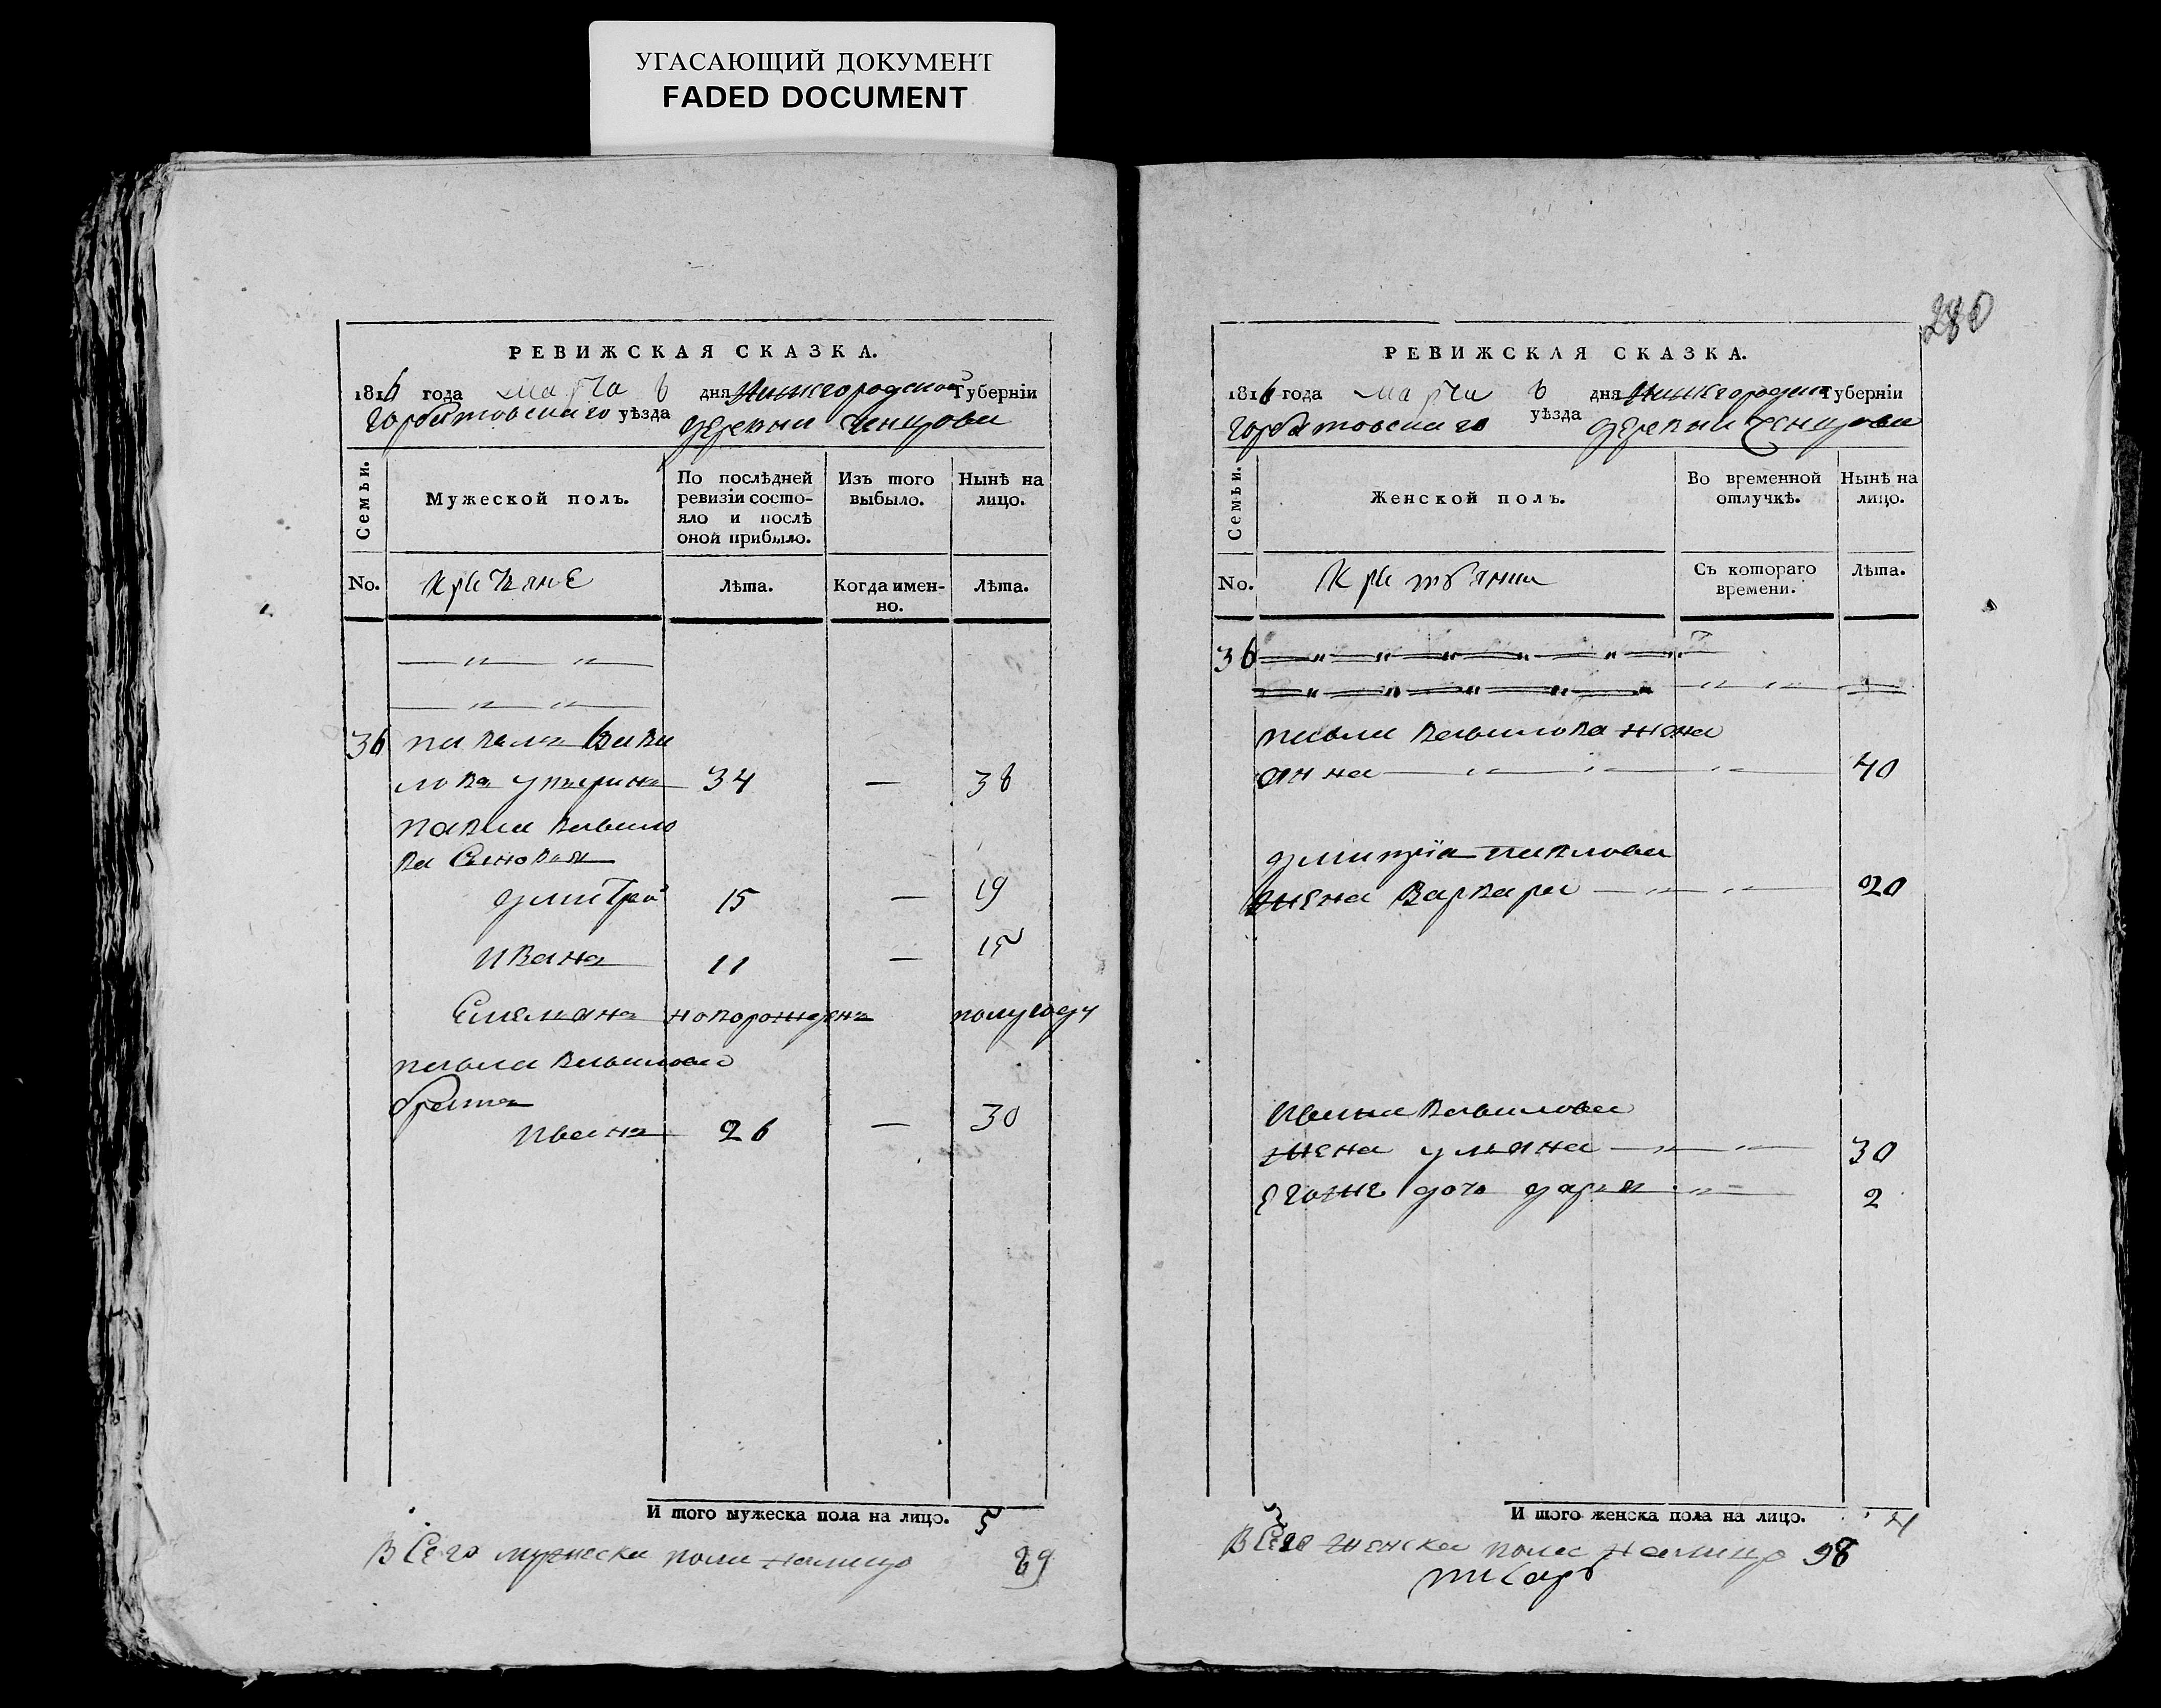 УГАСАЮЩИЙ ДОКУМЕНТ
FADED DOCUMENT
РЕВИЖСКАЯ СКАЗКА.
1816 года марта 8 дня Нижегородской Губерніи
Горбатовскаго уѣзда деревни Ченцовы
Семьи.
Мужеской полъ.
По послѣдней ревизіи состо-
яло и послѣ
оной прибыло.
Изъ того
выбыло.
Нынѣ на
лицо.
No.
Лѣта.
Когда имен-
но.
Лѣта.
36 павелъ Вави
ловъ 34 — 38
павла вавило
ва Сыновья
дмитрей 15 — 19
Иванъ 11 — 15
Емельянъ новорожденъ полугоду
павла вавилова
братъ
Иванъ 26 — 30
И того мужеска пола на лицо. 5
Всего мужеска пола налицо 89
280
РЕВИЖСКАЯ СКАЗКА.
1816 года марта 8 дня Нижегородской Губерніи
Горбатовскаго уѣзда деревни Ченцовы
Семьи.
Женской полъ.
Во временной
отлучкѣ.
Нынѣ на
лицо.
No.
Съ котораго
времени.
Лѣта.
36
павла вавилова жена
анна 40
дмитрія павлова
жена Варвара 20
Ивана вавилова
жена ульяна 30
Егоже дочь дарья 2
И того женска пола на лицо. 4
Всего женска пола налицо 98
писарь